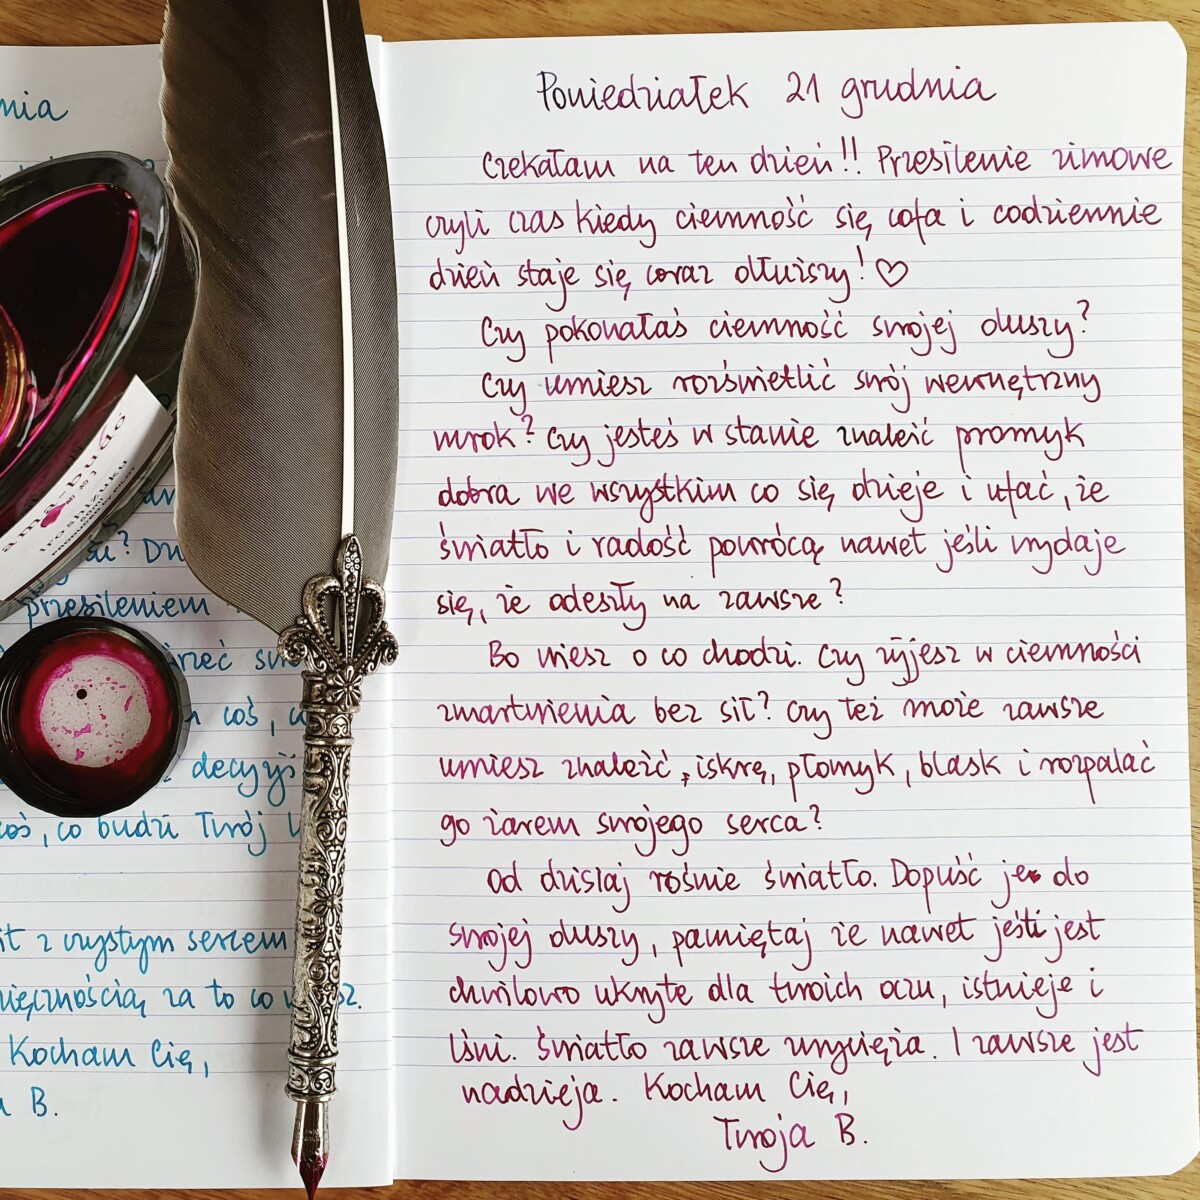 Poniedziałek 21 grudnia
Czekałam na ten dzień!! Przesilenie zimowe
czyli czas kiedy ciemność się cofa i codziennie
dzień staje się coraz dłuższy! ♡
Czy pokonałaś ciemność swojej duszy?
Czy umiesz rozświetlić swój wewnętrzny
mrok? Czy jesteś w stanie znaleźć promyk
dobra we wszystkim co się dzieje i ufać, że
światło i radość powrócą nawet jeśli wydaje
się, że odeszły na zawsze?
Bo wiesz o co chodzi. Czy żyjesz w ciemności
zmartwienia bez sił? Czy też może zawsze
umiesz znaleźć, iskrę, płomyk, blask i rozpalać
go żarem swojego serca?
Od dzisiaj rośnie światło. Dopuść je do
swojej duszy, pamiętaj że nawet jeśli jest
chwilowo ukryte dla twoich oczu, istnieje i
lśni. Światło zawsze zwycięża. I zawsze jest
nadzieja. Kocham Cię,
Twoja B.
przesileniem
coś,
decyzj
coś, co budzi Twój
z czystym sercem
za to co
Kocham Cię,
B.